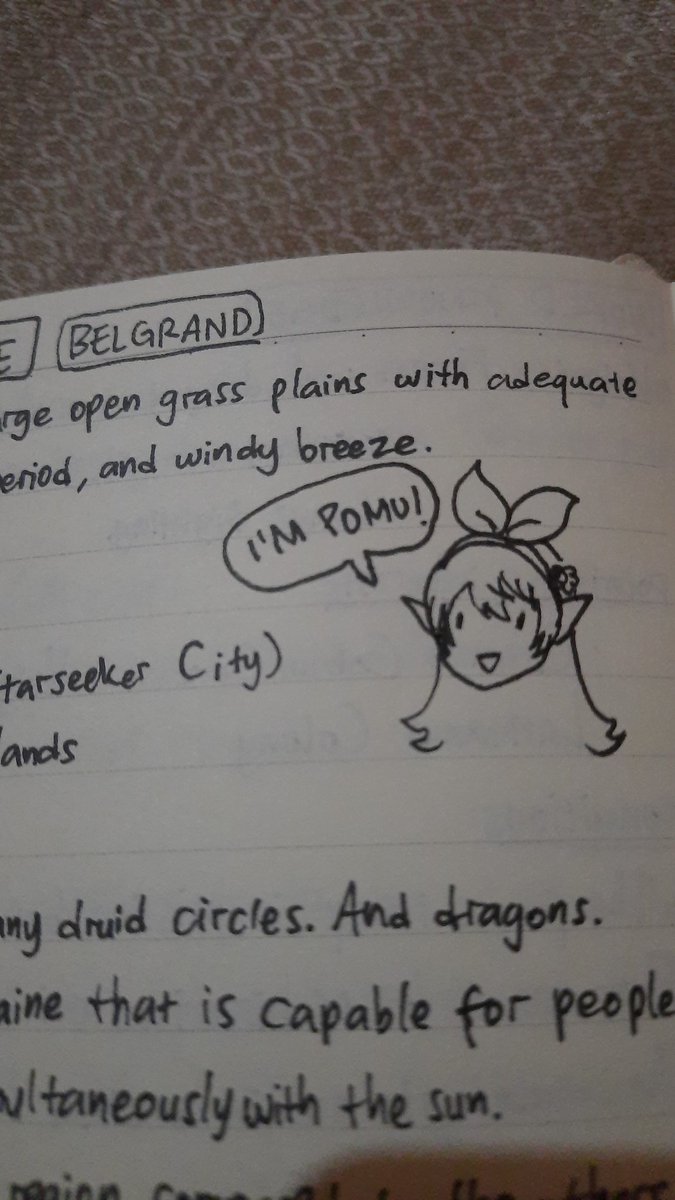 E BELGRAND
arge open grass plains with adequate
eriod, and windy breeze.
I'M POMU!
tarseeker City)
ands
any druid circles. And dragons.
aine that is capable for people
ultaneously with the sun.
region